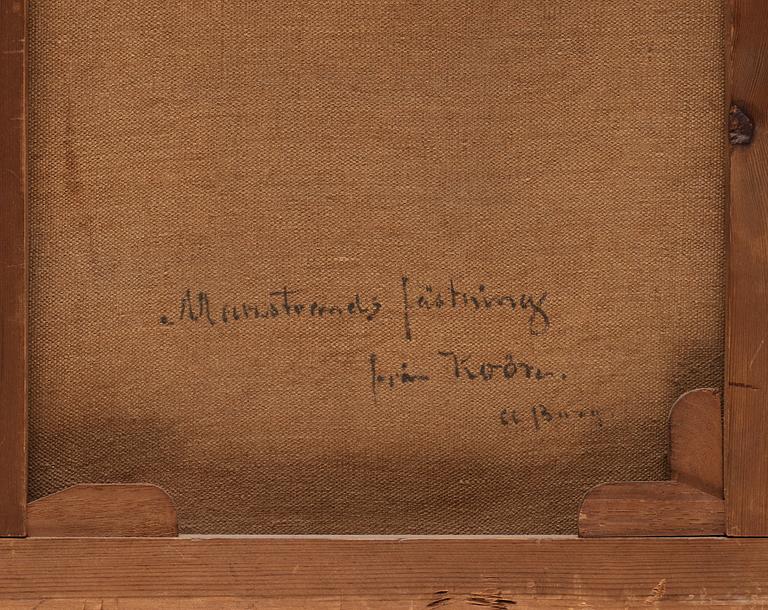 Marstrands fästning
från Koön.
A Berg.